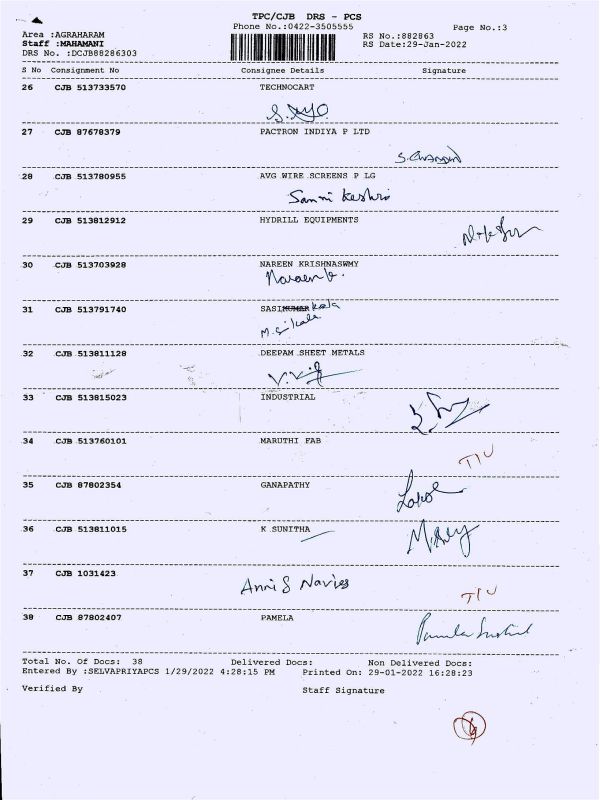 TPC/CJB DRS - PCS
Phone No.:0422-3505555
Page No.:3
Area :AGRAHARAM
RS No.:882863
Staff :MAHAMANI
RS Date:29-Jan-2022
DRS No. :DCJB88286303
S No Consignment No Consignee Details Signature
26 CJB 513733570 TECHNOCART
27 CJB 87678379 PACTRON INDIYA P LTD
28 CJB 513780955 AVG WIRE SCREENS P LG
Sanni Keshri
29 CJB 513812912 HYDRILL EQUIPMENTS
30 CJB 513703928 NAREEN KRISHNASWMY
31 CJB 513791740 SASIKUMAR kala
32 CJB 513811128 DEEPAM SHEET METALS
33 CJB 513815023 INDUSTRIAL
34 CJB 513760101 MARUTHI FAB
T/U
35 CJB 87802354 GANAPATHY
36 CJB 513811015 K SUNITHA
37 CJB 1031423
T/U
38 CJB 87802407 PAMELA
Total No. Of Docs: 38 Delivered Docs: Non Delivered Docs:
Entered By :SELVAPRIYAPCS 1/29/2022 4:28:15 PM Printed On: 29-01-2022 16:28:23
Verified By Staff Signature